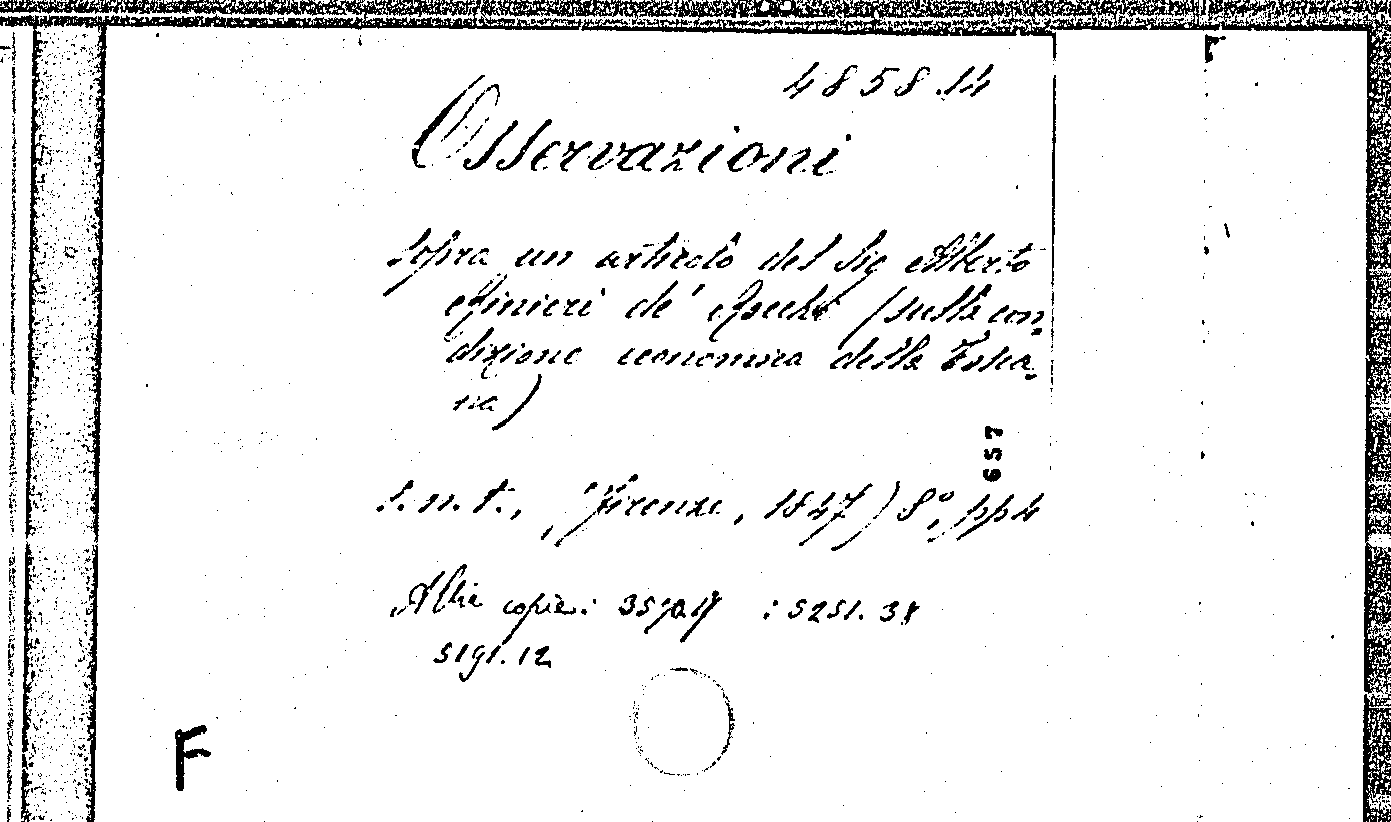 4858.14
Osservazioni
sopra un articolo del Sig Alberto
Rinieri de' Rocchi (sulla con-
dizione economica della Tosca-
na)
657
s.n.t., (Firenze, 1847) 8°, pp 4
Altre copie: : 5251.38
5191.12
F